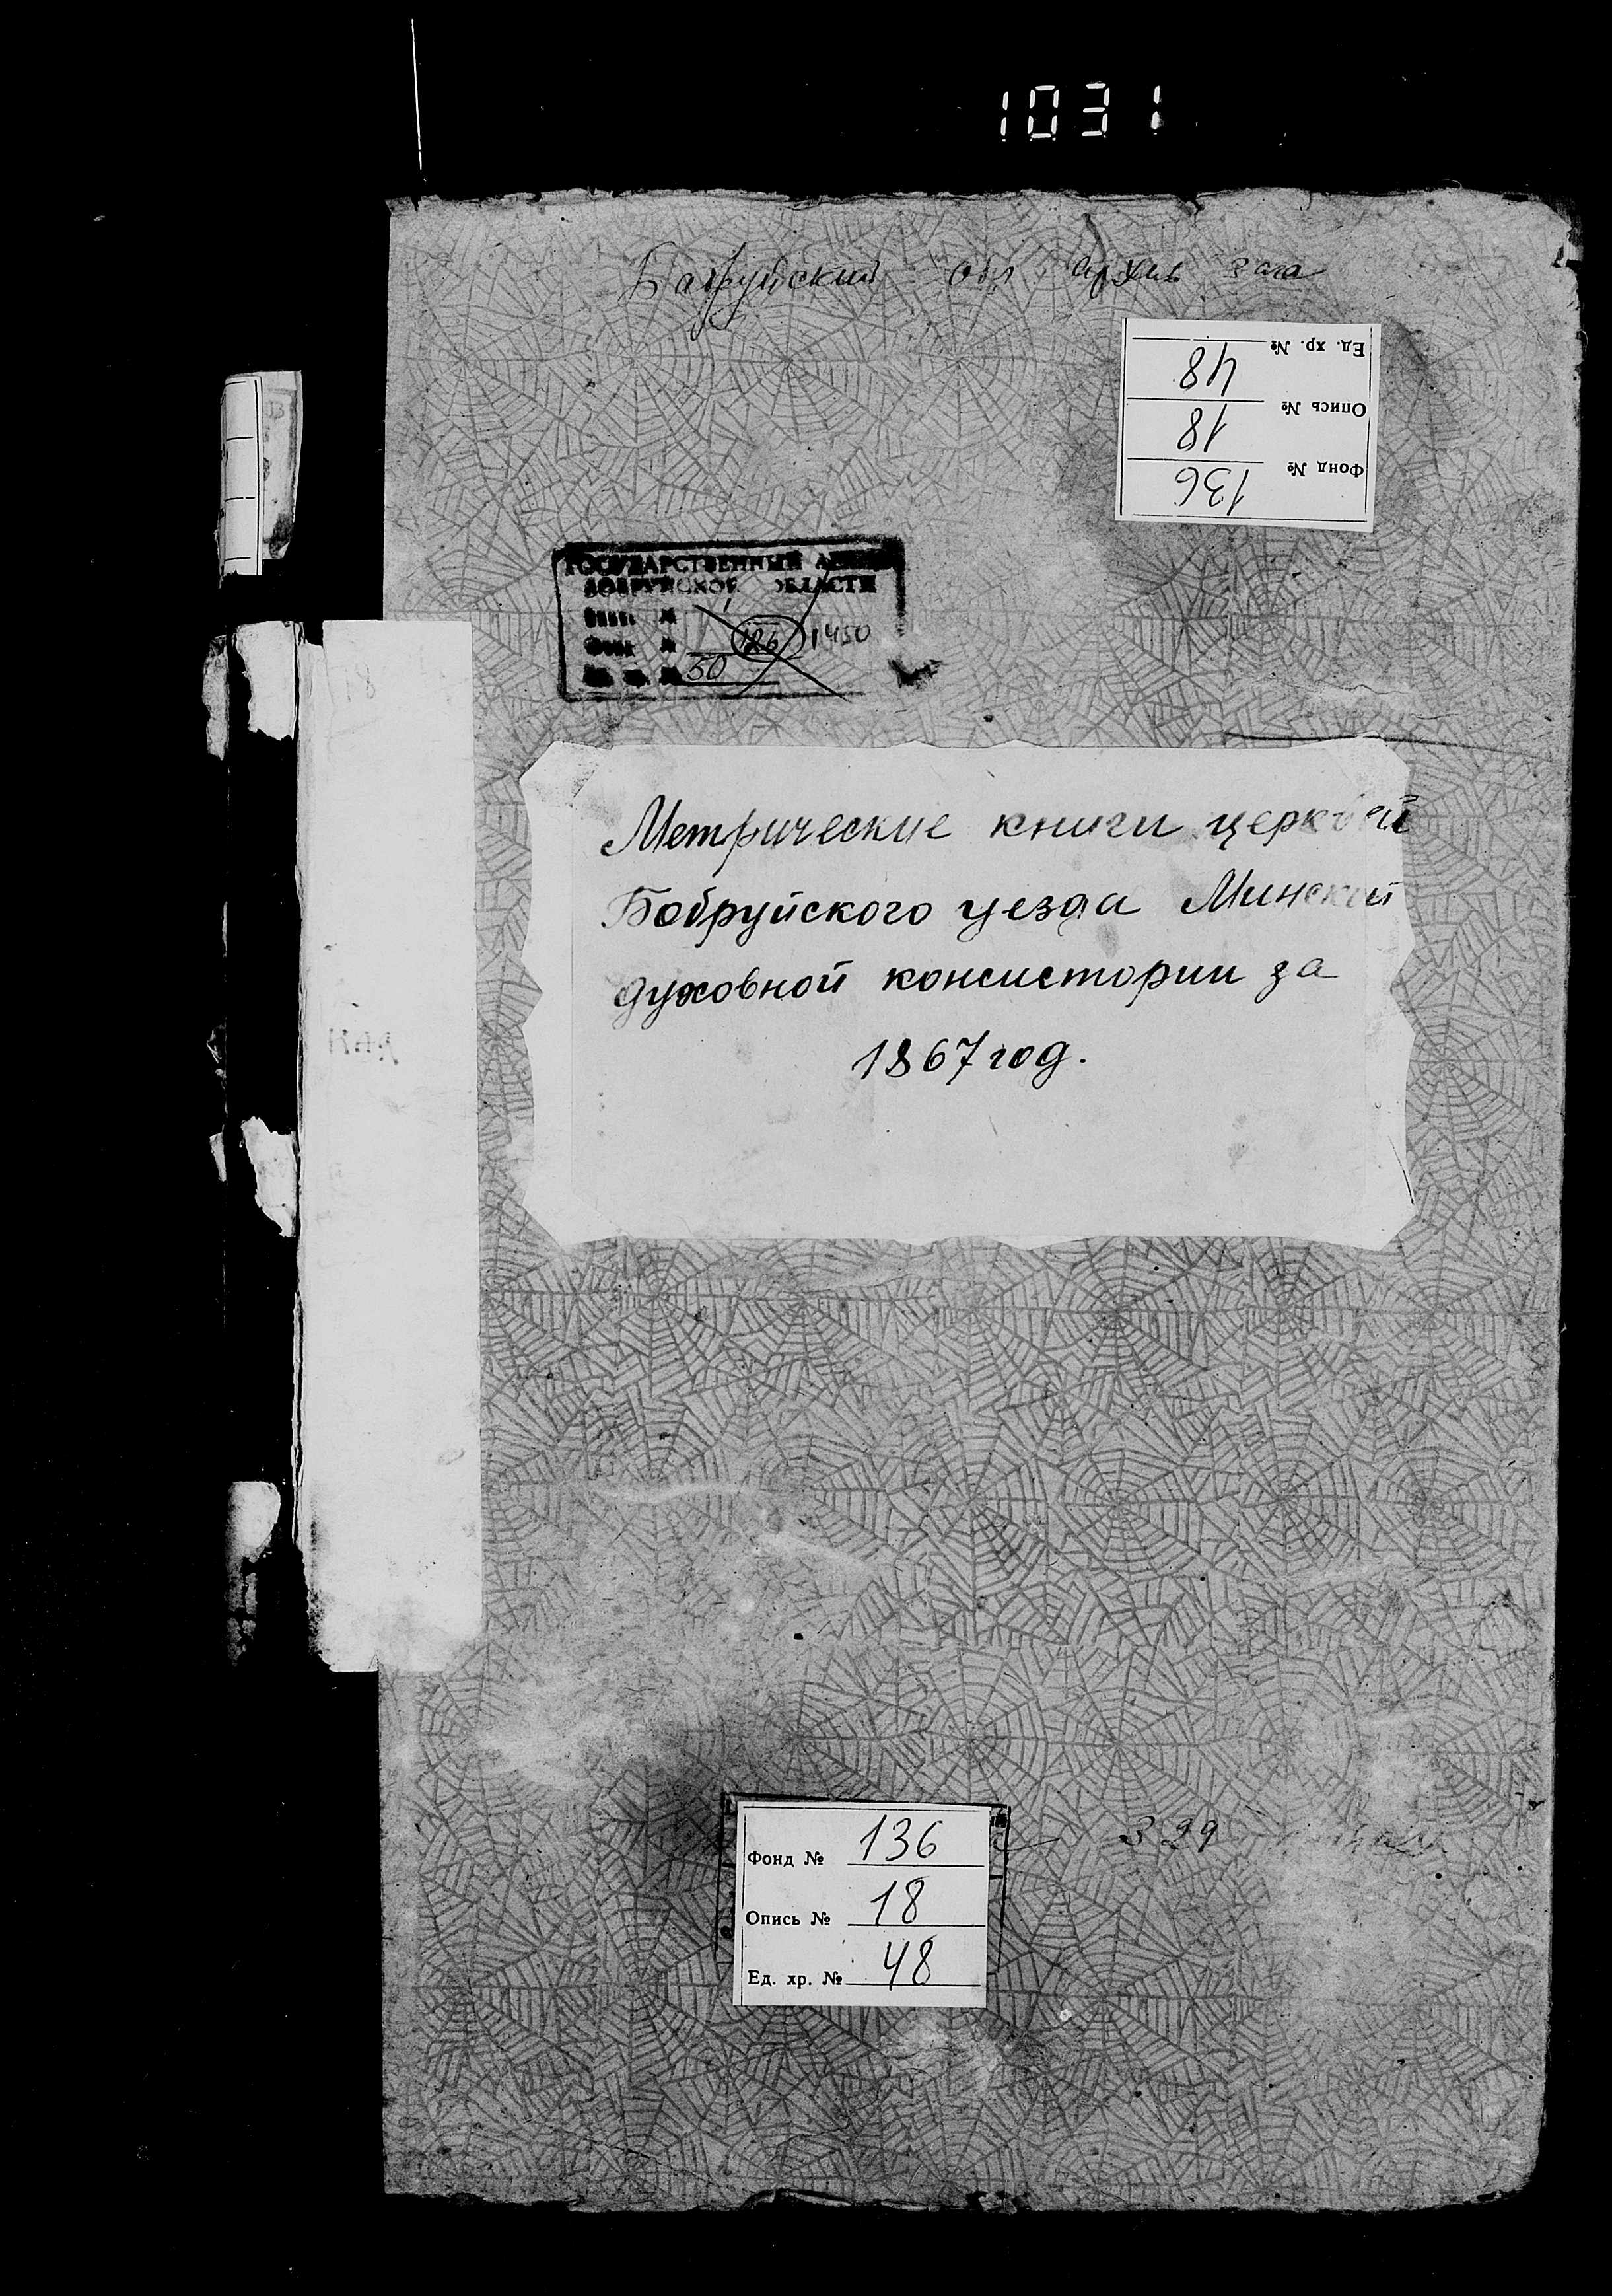 1031
Бабруйский обл архив загса
Ед. хр. № 48
Опись № 18
Фонд № 136
ГОСУДАРСТВЕННЫЙ
БОБРУЙСКОЙ ОБЛАСТИ
126 1450
50
Метрические книги церквей
Бобруйского уезда Минской
духовной консистории за
1867 год.
399
Фонд № 136
Опись № 18
Ед. хр. № 48